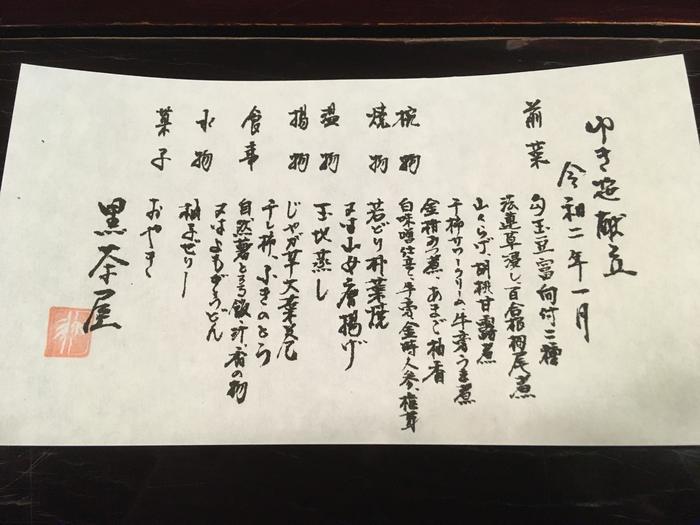 令和二年一月
前菜
勾玉豆富 向付二種
菠薐草浸し 百合根 栂尾煮
山くらげ 胡桃甘露煮
干柿サワークリーム 牛蒡うま煮
金柑み煮 あまご柚香
椀物
白味噌仕立 牛蒡 金時人参 椎茸
焼物
若どり朴葉焼
又は山女唐揚げ
温物
玉地蒸し
揚物
じゃが芋大葉真丈
干し柿、ふきのとう
食事
自然薯とろろ飯、汁、香の物
又はよもぎうどん
水物
柚子ぜりー
菓子
おやき
黒茶屋